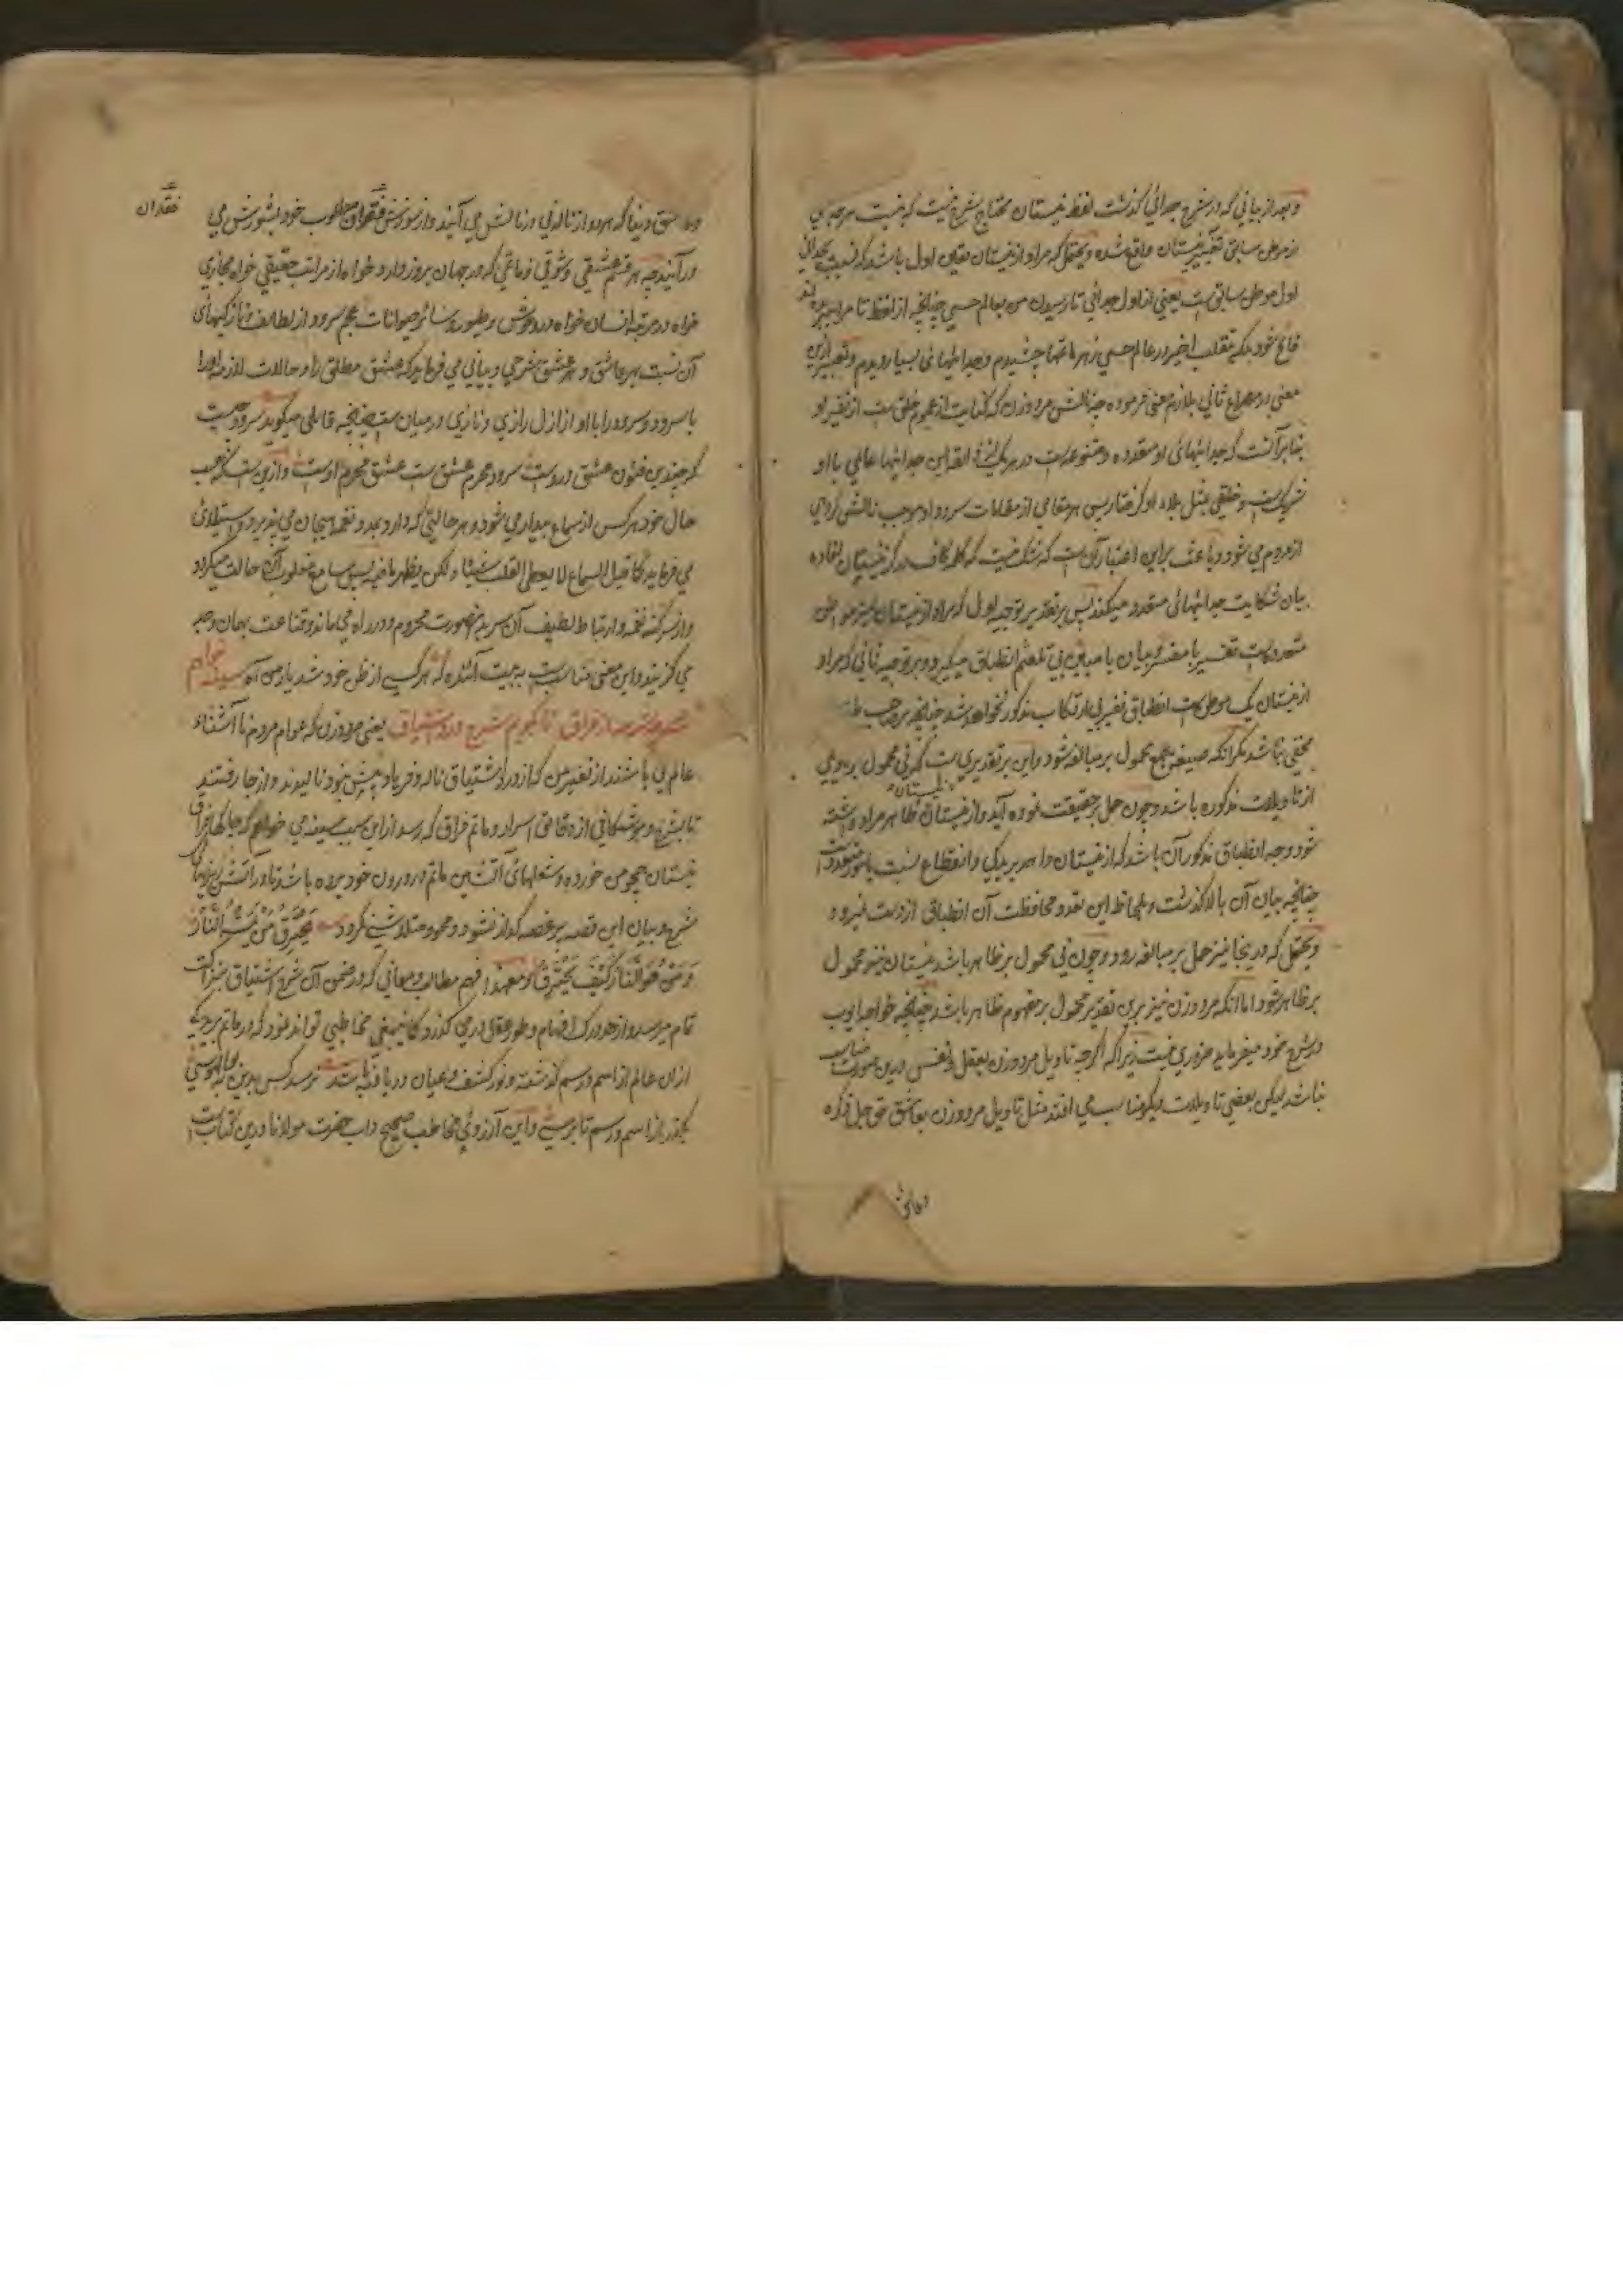 و بعد از بیانی که در شرح جدائی گذشت لفظ نیستان محتاج شرح نیست که نیست هر جدی
از موطن سابق تغییر نیستان واقع شده و یحتمل که مراد از نیستان تعین اول باشد که نسبت بجدائی
اول موطن سابق ست یعنی از اول جدائی تا رسیدن من بعالم حسی چنانچه از لفظ تا مرا ببریده اند
خود بلکه بتقلب اخیر در عالم حسی زهر ماتمها چشیدم و جدائیهای بسیار دیدم و تعبیر ازین
معنی در مصراع ثانی بلازم معنی فرموده چه نالش مرد و زن که کنایت از عموم خلق ست از نفیر او
بنابر آنست که جدائیهای او متعدده و متنوعه است در هر یک این جدائیها عالمی با او
شریک ست و خلقی مثل بلاء او گرفتار پس هر مقامی از مقامات سرود او موجب نالش گروهی
از مردم می شود و باعث براین اعتبار آن ست که شک نیست که کلمه کاف در کز نیستان افاده
بیان شکایت جدائیهای متعدد میکند پس بر تقدیر توجیه اول که مراد از نیستان نیز موطن
متعدد است تفسیر با مفسر و بیان با مبین بی تلعثم انطباق میگیرد و بر توجیه ثانی که مراد
از نیستان یک موطن است انطباق تفسیر بی ارتکاب مذکور نخواهد شد چنانچه بر صاحب طبع
مخفی نباشد مگر آنکه صیغه جمع محمول بر مبالغه شود و این بر تقدیری ست که نی محمول بر یکی
از تاویلات مذکوره باشد و چون حمل بر حقیقت نموده آید و از نیستان نیستان ظاهر مراد داشته
شود وجه انطباق مذکور آن باشد که از نیستان دا هر بریدگی و انقطاع نسبت با متعدد است
چنانچه بیان آن بالا گذشت و بلحاظ این تعدد محافظت آن انطباق از دست نمیرود
و یحتمل که در ینجا نیز حمل بر مبالغه رود و چون نی محمول بر ظاهر باشد نیستان نیز محمول
بر ظاهر شود اما آنکه مرد و زن نیز برین تقدیر محمول بر مفهوم ظاهر باشد چنانچه خواجه ایوب
در شرح خود میفرماید ضروری نیست زیرا که اگرچه تاویل مرد و زن بعقل و نفس درین صورت مناسب
نباشد لیکن بعضی تاویلات دیگر مناسب می افتد مثل تاویل مرد و زن بعاشق حق جل ذکره
و عاشق دنیا که هر دو از ناله نی در نالش می آیند و از سوزش فقدان مطلوب خود بشورش می
فقدان
در آیند چه هر قسم عشقی و شوقی و ماتمی که در جهان بروز دارد خواه از مراتب حقیقی خواه مجازی
خواه در مرتبه انسان خواه در وحوش و طیور و سائر حیوانات عجم سرود از لطایف و نازکیهای
آن نسبت بهر عاشق و هر عشق شرحی و بیانی می فرماید که عشق مطلق را و حالات لازمه او را
با سرود و سرود را با او از ازل رازی و نازی در میان ست چنانچه قائلی میگوید سرود چیست
که چندین فنون عشق دروست سرود محرم عشق ست عشق محرم اوست و ازین ست که بحسب
حال خود هر کس از سماع بیدار می شود و هر حالتی که دارد بعد و نغمه هیجان می پذیرد و استیلای
می فرماید کما قیل السماع لا یعطی القلب شیئا و لکن یظهر ما فیه پس سامع مغلوب آن حالت میگردد
و از سر کنه نغمه و ارتباط لطیف آن سر بدین صورت محروم و در راه می ماند و قناعت بهمان وجه
می گزیند و این معنی مناسب بیت آئنده که هرکسی از ظن خود شد یار من آه سینه خواهم
شرحه شرحه از فراق تا بگویم شرح درد اشتیاق یعنی مرد و زن که عوام مردم نا آشناء
عالم نی باشند از نفیر من که از درد اشتیاق ناله و فریاد پیش بود نالیدند و از جا رفتند
تا بشرح و موشگافی از دقائق اسرار و ماتم فراق که رسد ازین سبب سینه می خواهم که جا گهای فراق
نیستان همچو من خورده و شعلهای آتشین ماتم در درون خود برده باشد تا در آتش
شرح و بیان این قصه پر غصه گداز نشود و محو و متلاشی نگردد یحترق من یمس النار
و من هو النار کیف یحترق و معهذا فهم مطالب و معانی که در ضمن آن شرح اشتیاق سر است
تمام میرسد و از حد درک افهام و طور عقل در می گذرد کما ینبغی مخاطبی تواند نمود که در ماتم بریدگی
از ان عالم از اسم و رسم گذشته و نور کشف و عیان دریافته باشد نرسد کس بدین
بگذر از اسم و رسم تا برسی و این آرزوی مخاطب صحیح داب حضرت مولانا درین کتاب است